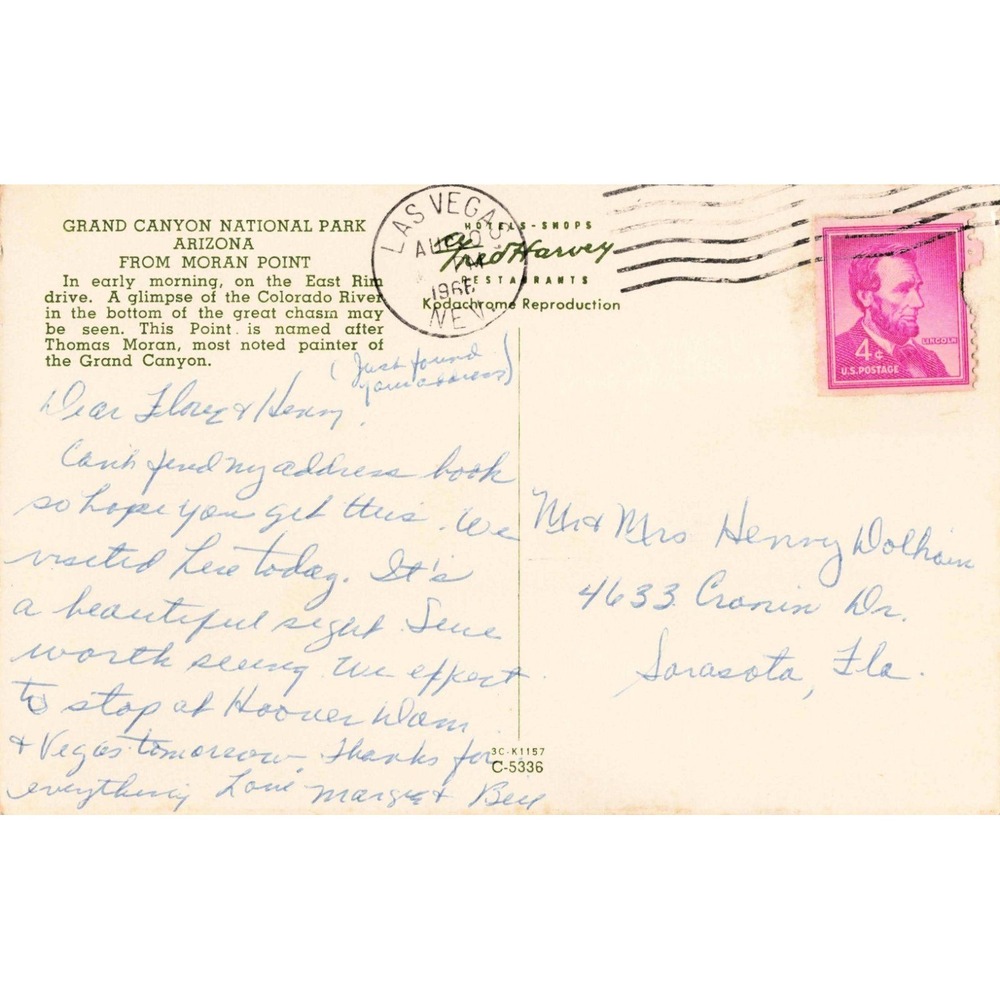 GRAND CANYON NATIONAL PARK
ARIZONA
FROM MORAN POINT
In early morning, on the East Rim
drive. A glimpse of the Colorado River
in the bottom of the great chasm may
be seen. This Point is named after
Thomas Moran, most noted painter of
the Grand Canyon.
(Just found
your address)
Dear & Henry,
Can't find my address book
so hope you get this. We
visited here today. It's
a beautiful sight. Sure
worth seeing. We expect
to stop at Hoover Dam
& Vegas tomorrow. Thanks for
everything Love Marge &
LAS VEGAS
AUG 20
NEV.
HOTELS-SHOPS
Fred Harvey
RESTAURANTS
Kodachrome Reproduction
LINCOLN
4¢
U.S. POSTAGE
Mr & Mrs Henry
4633 Cronin Dr.
Sarasota, Fla.
3C-K1157
C-5336